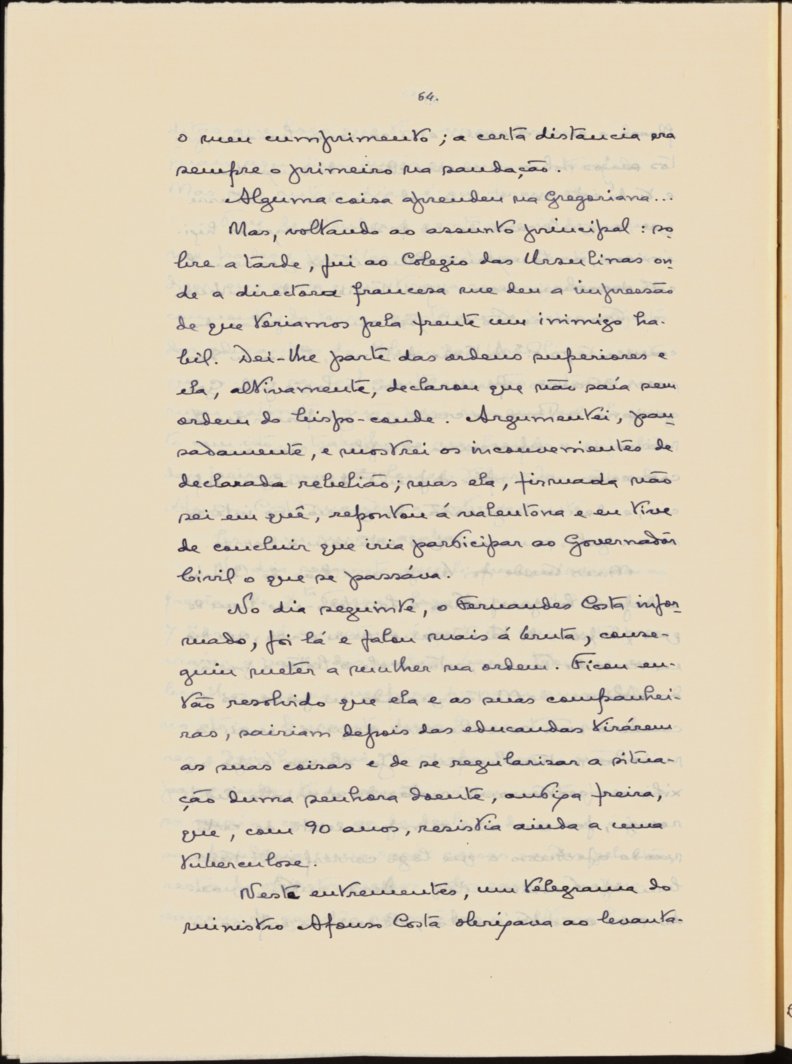 64.
o meu cumprimento; a certa distancia era
sempre o primeiro na saudação.
Alguma coisa aprendeu na Gregoriana...
Mas, voltando ao assunto principal: so-
bre a tarde, fui ao Colegio das Ursulinas on-
de a directora francesa me deu a impressão
de que teriamos pela frente um inimigo ha-
bil. Dei-lhe parte das ordens superiores e
ela, altivamente, declarou que não saía sem
ordem do bispo-conde. Argumentei, pau-
sadamente, e mostrei os inconvenientes de
declarada rebelião; mas ela, firmada não
sei em quê, repontou á valentona e eu tive
de concluir que iria participar ao Governadôr
Civil o que se passáva.
No dia seguinte, o Fernandes Costa infor-
mado, foi lá e falou mais á bruta, conse-
guiu meter a mulher na ordem. Ficou en-
tão resolvido que ela e as suas companhei-
ras, sairiam depois das educandas tirárem
as suas coisas e de se regularisar a situa-
ção duma senhora doente, antiga freira,
que, com 90 anos, resistia ainda a uma
tuberculose.
Neste entrementes, um telegrama do
ministro Afonso Costa obrigava ao levanta-